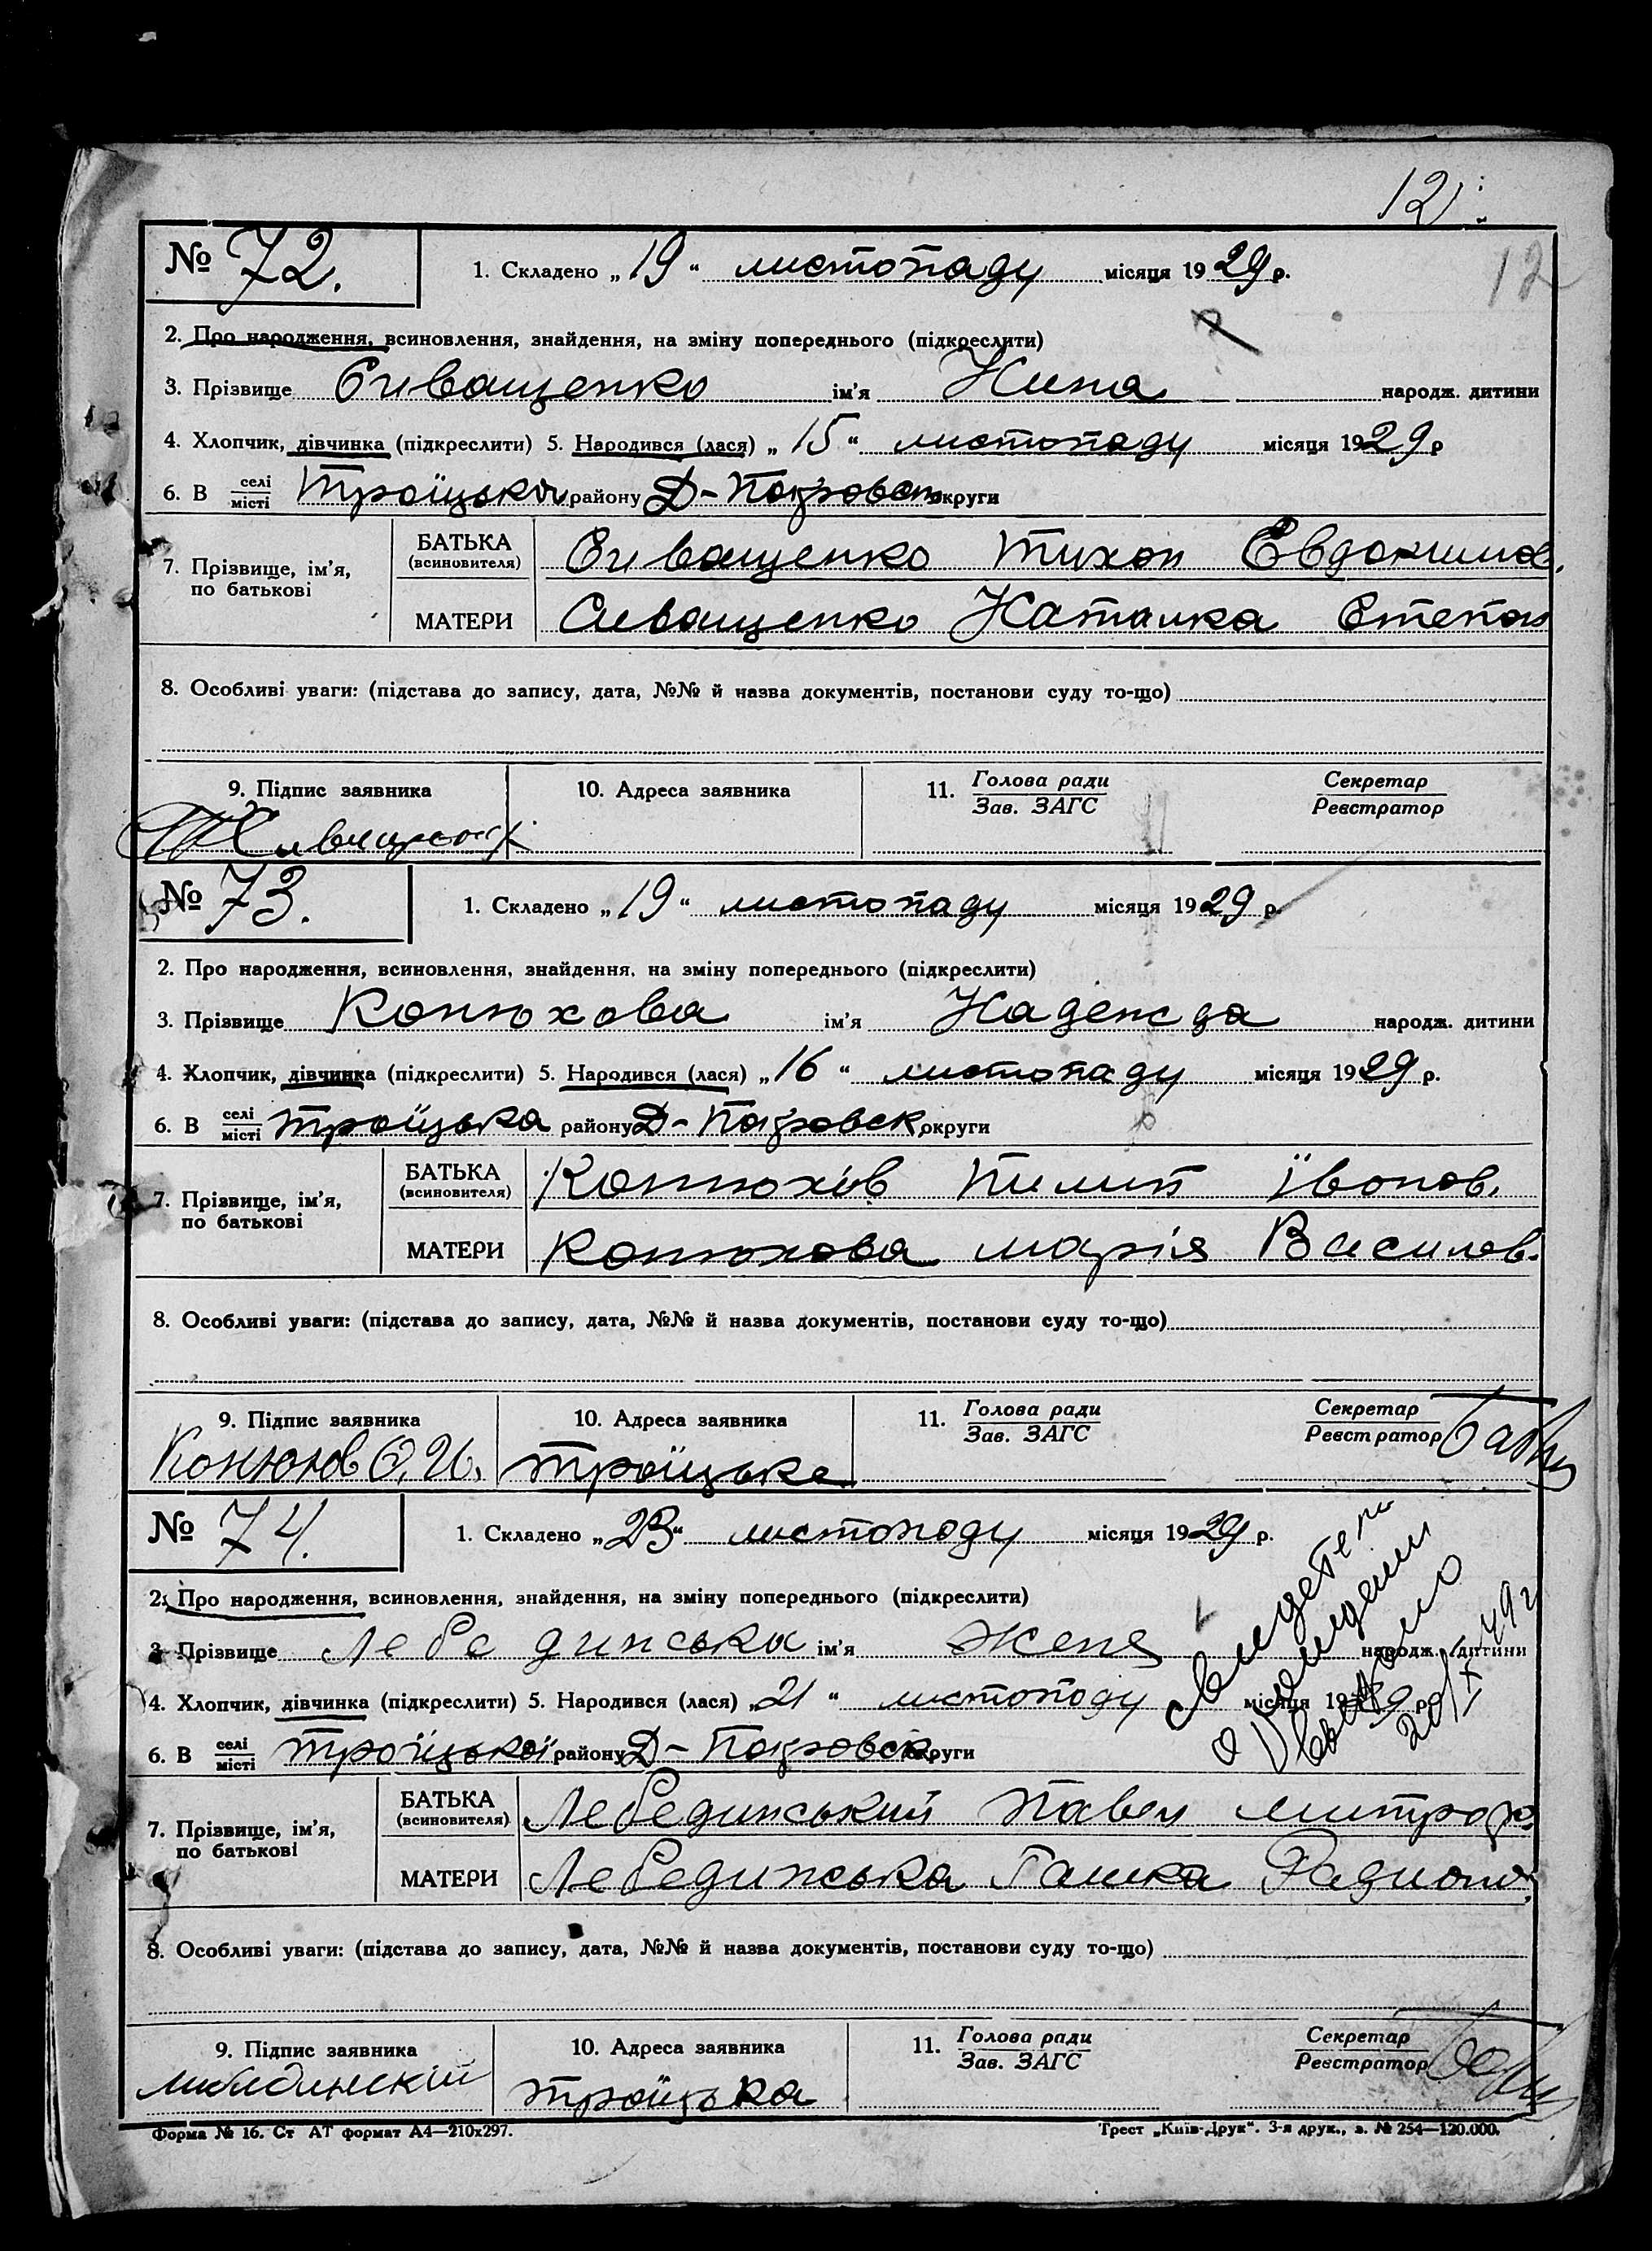 12
12
№ 72. 1. Складено „19“ листопаду місяця 1929 р.
2. Про народження, всиновлення, знайдення, на зміну попереднього (підкреслити)
3. Прізвище Сиващенко ім'я Нина народж. дитини
4. Хлопчик, дівчинка (підкреслити) 5. Народився (лася) „15“ листопаду місяця 1929 р
6. В селі/місті Троїцька району Д-Покровськ округи
7. Прізвище, ім'я, по батькові
БАТЬКА (всиновителя) Сиващенко Тихон Евдокимов.
МАТЕРИ Сиващенко Наталка Степан
8. Особливі уваги: (підстава до запису, дата, №№ й назва документів, постанови суду то-що)
9. Підпис заявника 10. Адреса заявника 11. Голова ради/Зав. ЗАГС Секретар/Реєстратор
№ 73. 1. Складено „19“ листопаду місяця 1929 р.
2. Про народження, всиновлення, знайдення, на зміну попереднього (підкреслити)
3. Прізвище Конюхова ім'я Надежда народж. дитини
4. Хлопчик, дівчинка (підкреслити) 5. Народився (лася) „16“ листопаду місяця 1929 р.
6. В селі/місті Троїцька району Д-Покровськ округи
7. Прізвище, ім'я, по батькові
БАТЬКА (всиновителя) Конюхов Пилип Івонов.
МАТЕРИ Конюхова Марія Василов.
8. Особливі уваги: (підстава до запису, дата, №№ й назва документів, постанови суду то-що)
9. Підпис заявника 10. Адреса заявника 11. Голова ради/Зав. ЗАГС Секретар/Реєстратор
Троїцьке
№ 74. 1. Складено „23“ листоподу місяця 1929 р.
2. Про народження, всиновлення, знайдення, на зміну попереднього (підкреслити)
3. Прізвище Лебединська ім'я Женя народж. дитини
4. Хлопчик, дівчинка (підкреслити) 5. Народився (лася) „21“ листоподу місяця 1929 р
6. В селі/місті Троїцької району Д-Покровськ округи
7. Прізвище, ім'я, по батькові
БАТЬКА (всиновителя) Лебединський Павел Митроф.
МАТЕРИ Лебединська Гашка Радионо.
8. Особливі уваги: (підстава до запису, дата, №№ й назва документів, постанови суду то-що)
9. Підпис заявника 10. Адреса заявника 11. Голова ради/Зав. ЗАГС Секретар/Реєстратор
Троїцька
Форма № 16. Ст АТ формат А4—210x297. Трест „Київ-Друк“. 3-я друк., з. № 254—120.000.